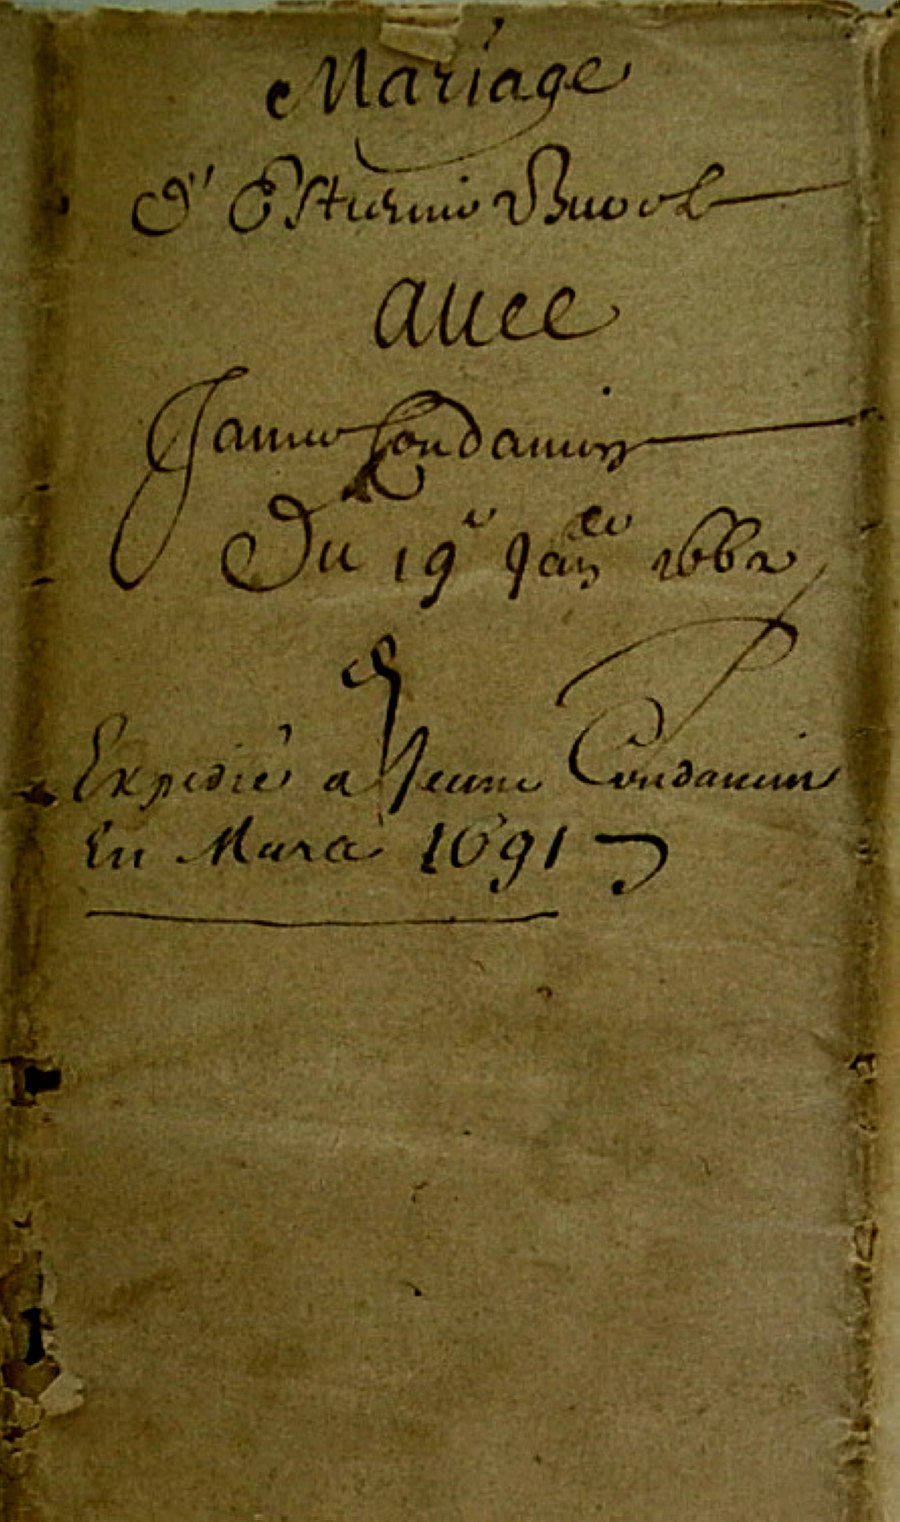 Mariage
d'Estienne Buool
auec
Janne Condamin
Du 19e Janer 1662
Expedié a Jeanne Condamin
En Mars 1691